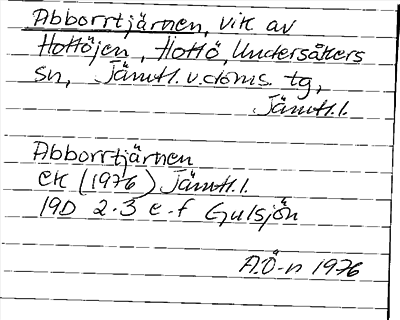 Abborrtjärnen, vik av
Hottöjen, Hottö, Undersåkers
sn, Jämtl. v. doms. tg,
Jämtl. l.
Abborrtjärnen
ek (1976) Jämtl. l.
19D 2-3 e-f Gulsjön
A.Ö-n 1976